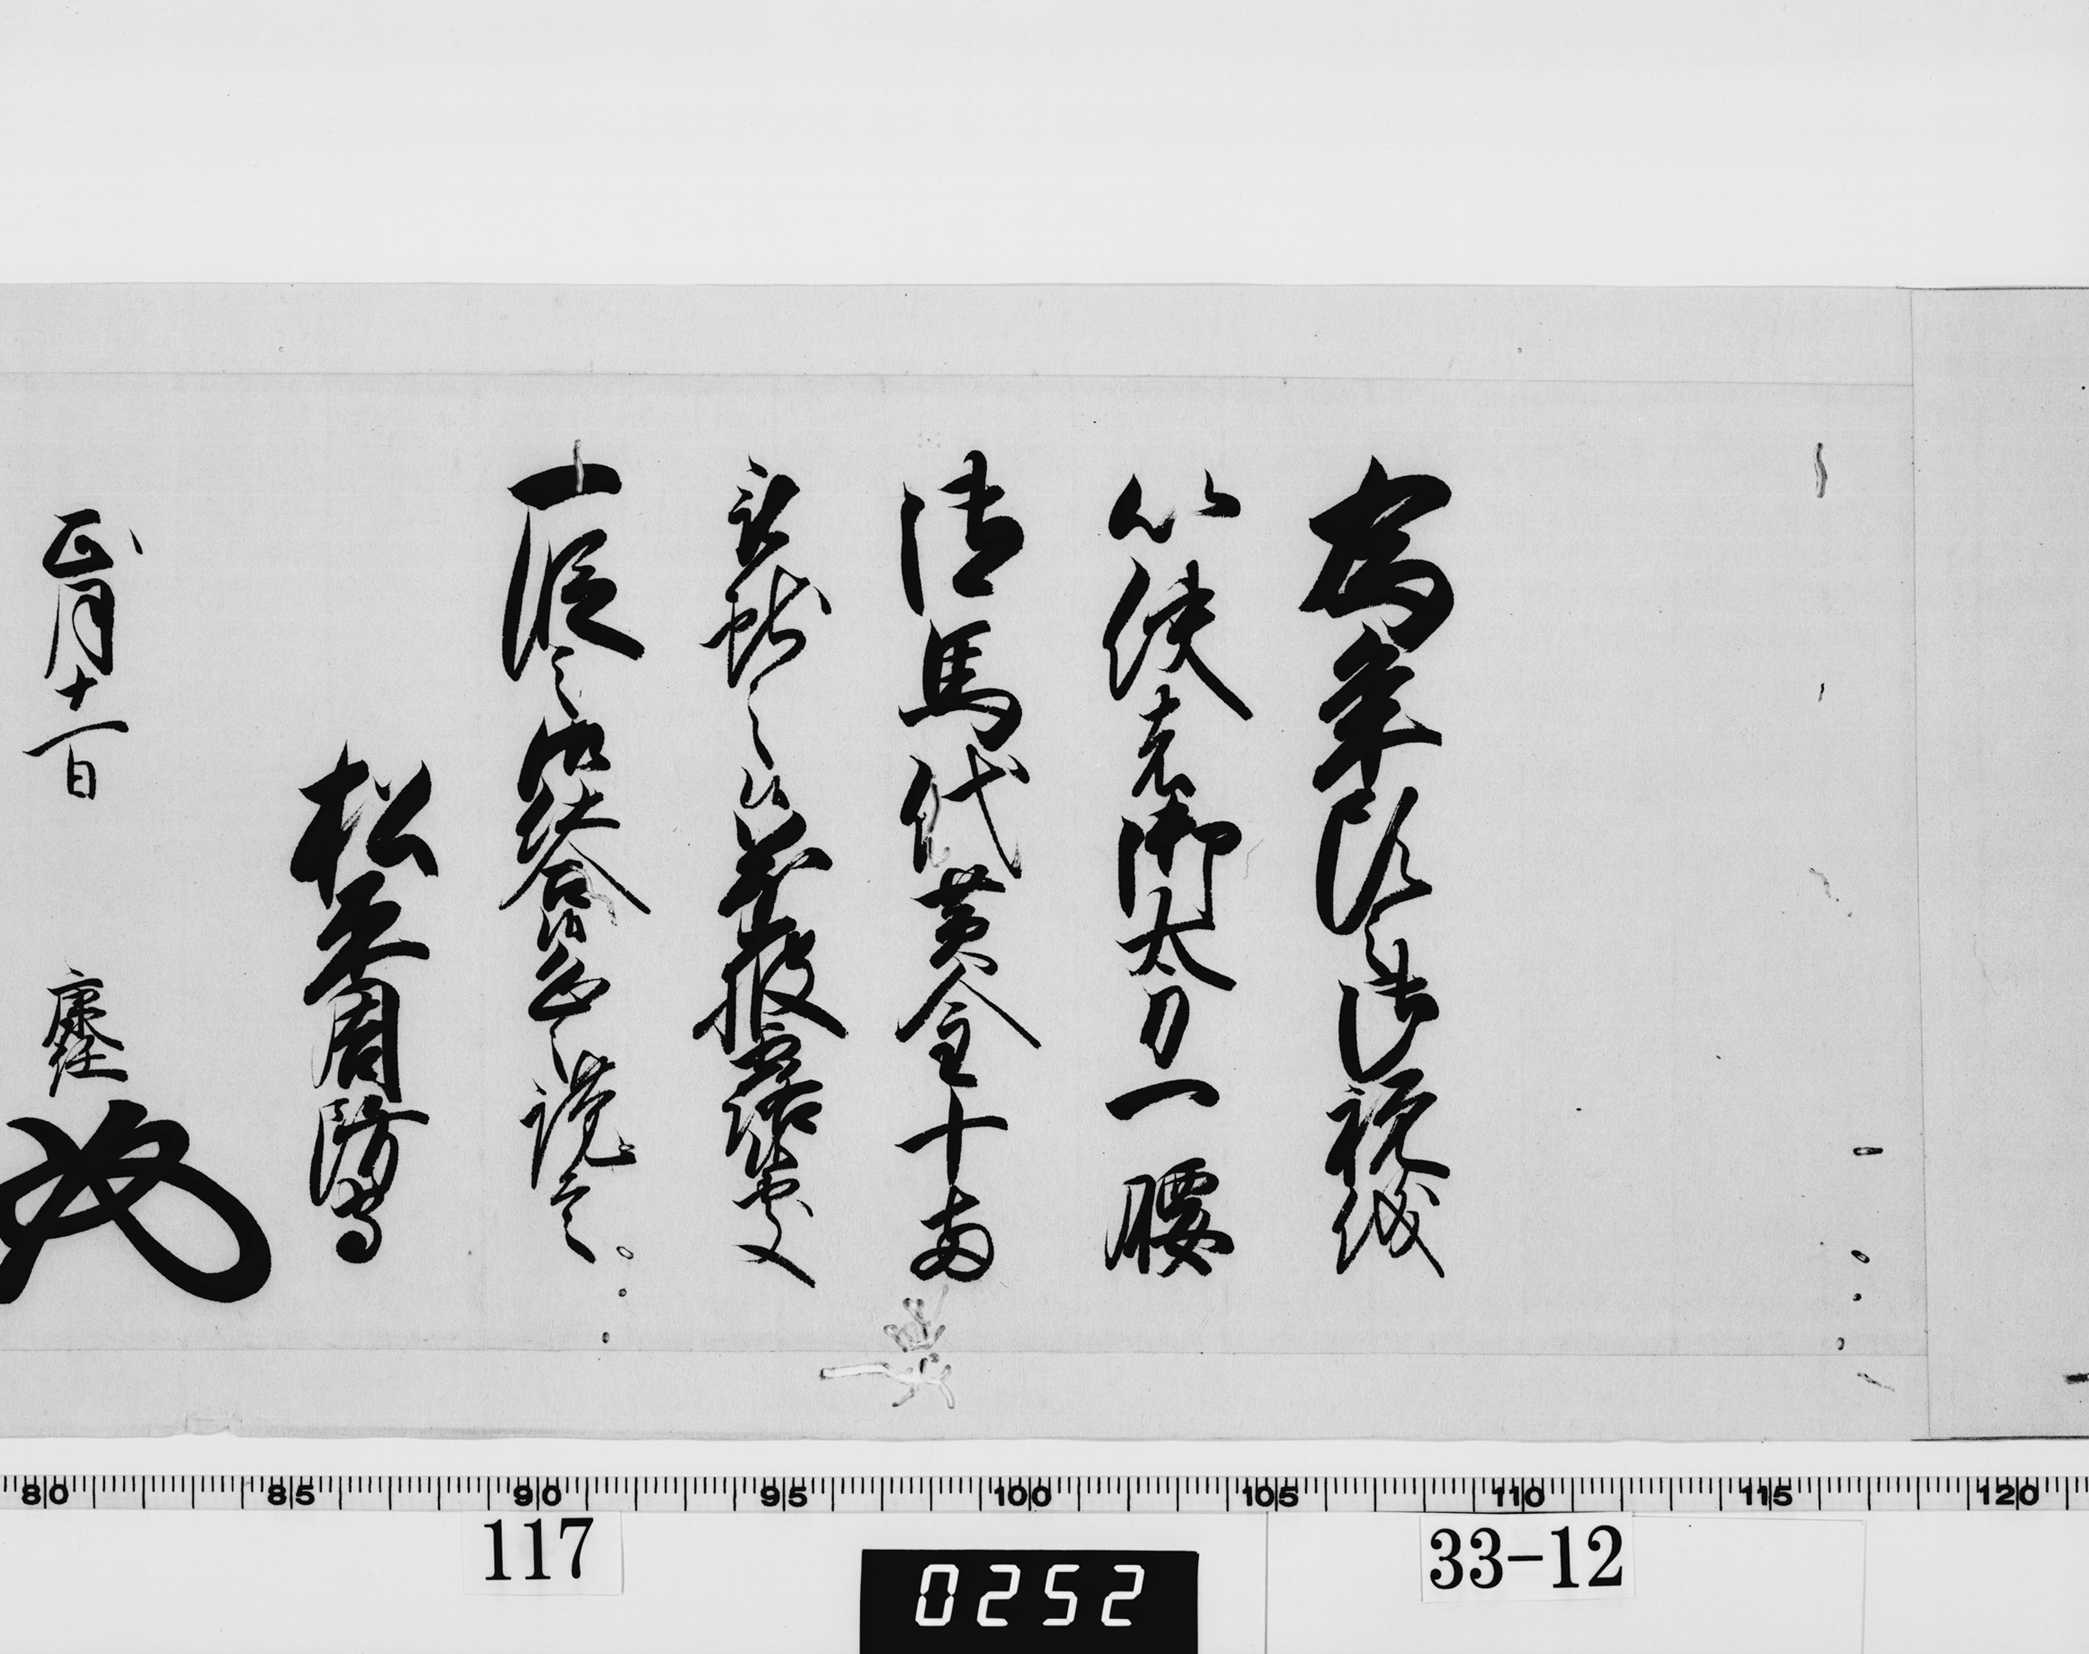 為年頭之御祝儀
以使者御太刀一腰
御馬代黄金十両
被献之候披露候処
一段之御仕合候恐々謹言
松平周防守
正月十一日 康任
80 85 90 95 100 105 110 115 120
117
0252
33-12